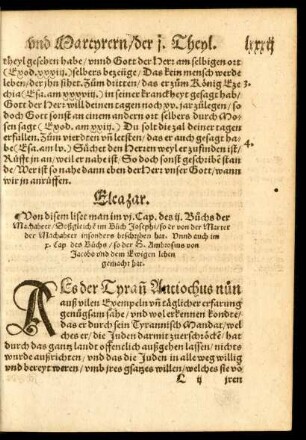 vnd Martyrern/der j. Theyl. lxxij
theyl gesehen habe / vnnd Gott der Herr am selbigen ort
(Exod. xxxiij.) selbers bezeüge / Das kein mensch werde
leben/der jhn sihet. Zům dritten/das er zům König Eze
chia (Esa. am xxxviij.) in seiner kranckheyt gesagt hab/ 3.
Gott der Herr will deinen tagen noch xv. jar zůlegen / so
doch Gott sonst an einem andern ort selbers durch Mo-
sen sagt (Exod. am xxiij.) Du solt die zal deiner tagen
erfüllen. Zům vierdten vñ letsten/das er auch gesagt ha-
be (Esa. am lv.) Sůchet den Herren weyl er zufinden ist/ 4.
Rüffe jn an/weil er nahe ist/ So doch sonst geschribẽ stan
de/Wer ist so nahe dann eben der Herr vnser Gott/wann
wir jn anrüffen.
Eleazar.
Von disem liset man im vj. Cap. des ij. Büchs der
Machabeer/ Deßgleiche im Büch Josephi/so er von der Marter
der Machabeer insonders beschriben hat. Vnnd auch im
x. cap. des Büchs / so der S. Ambrosius von
Jacobo vnd dem Ewigen leben
gemacht hat.
ALs der Tyrañ Antiochus nůn
auß vilen Exempeln vñ täglicher erfarung
genůgsam sahe/ vnd wol erkennen kondte/
das er durch sein Tyrannisch Mandat/wel
ches er/ die Juden darmit zuerschröckẽ/ hat
durch das gantz landt offenlich außgehen lassen/ nichts
wurde außrichten/ vnd das die Juden in alle weg willig
vnd bereyt weren / vmb jres gsatzes willen/welches sie võ
L ij jren